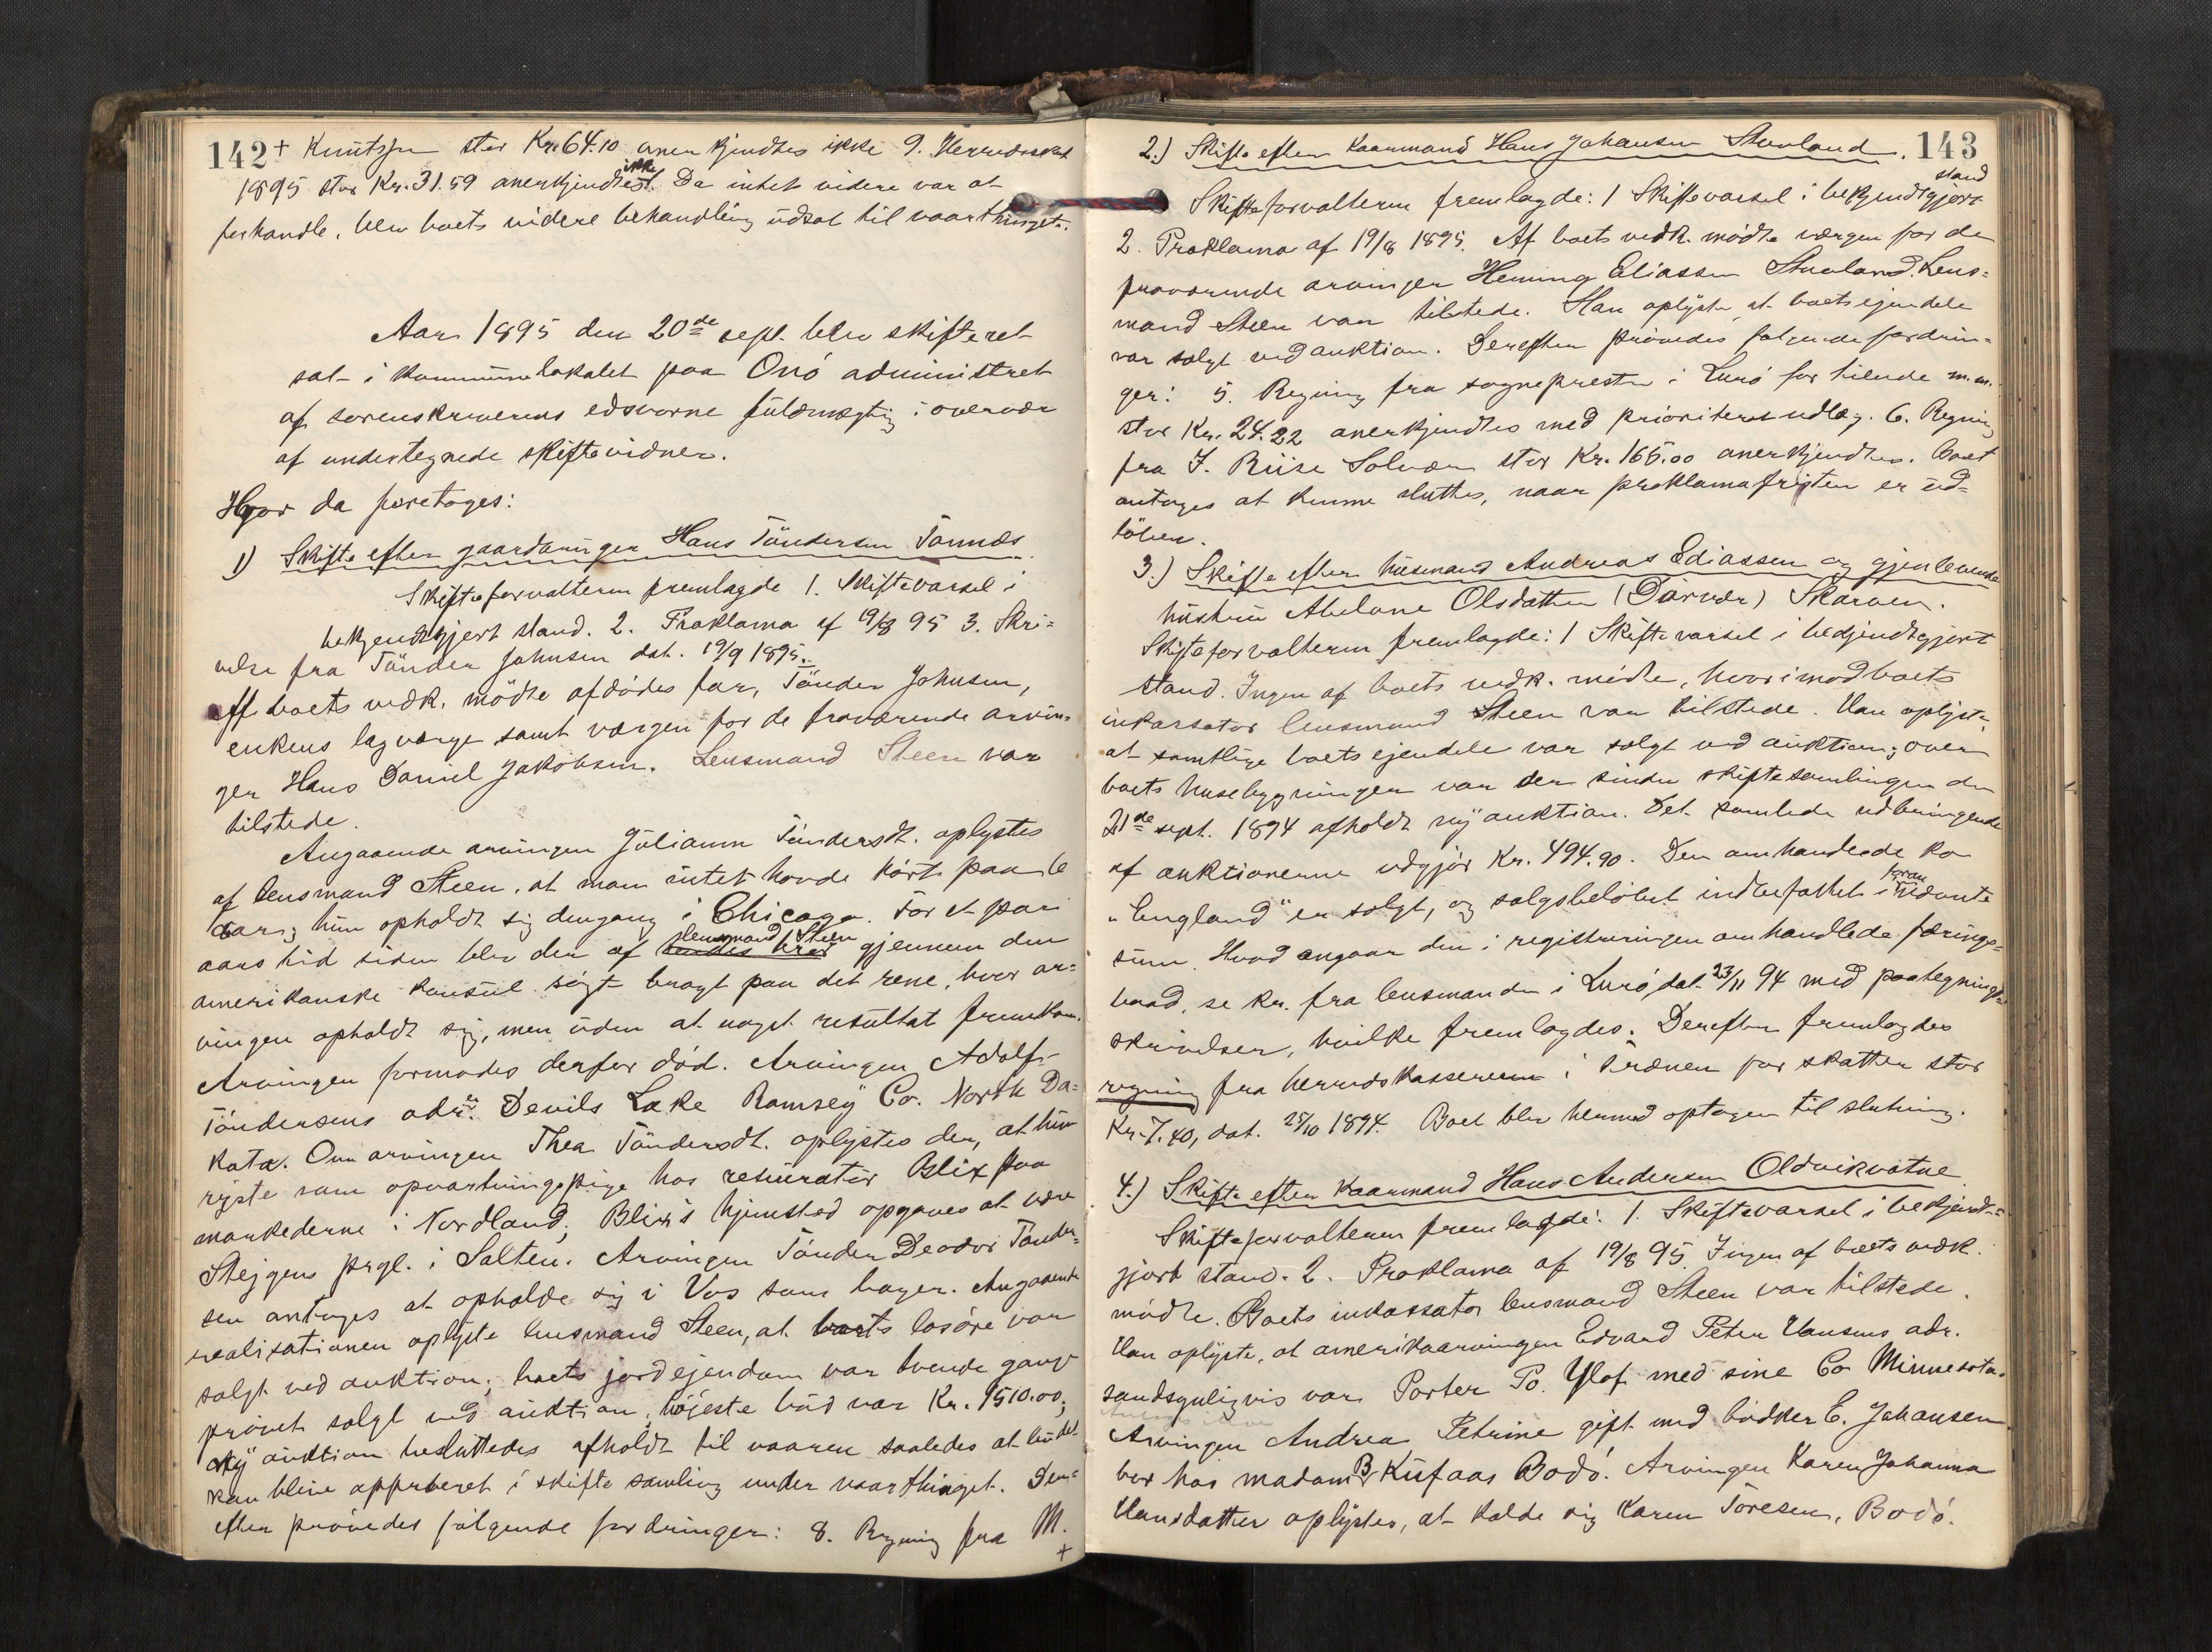 142
+ Knutsen stor Kr. 64.10 anerkjendtes ikke 9. Herredsskat
1895 stor Kr. 31.59 anerkjendtes ikke. Da intet videre var at
forhandle, blev boets videre behandling udsat til vaarthinget.
Aar 1895 den 20de sept. blev skifteret
sat i kommunelokalet paa Onö administret
af sorenskriverens edsvorne fuldmægtig i overvær
af undertegnede skiftevidner.
Hvor da foretoges:
1) Skifte efter gaardbruger Hans Töndersen Tonnes
Skifteforvalteren fremlagde 1. Skiftevarsel i
bekjendtgjort stand. 2. Proklama af 19/8 95 3. Skri=
velse fra Tönder Johnsen dat. 19/9 1895.
Af boets vedk. mödte afdödes far, Tönder Johnsen,
enkens lagværge samt værgen for de fraværende arvin=
ger Hans Daniel Jakobsen. Lensmand Steen var
tilstede.
Angaaende arvingen Juliann Töndersdt. oplystes
af lensmand Steen, at man intet havde hört paa 6
aar; hun opholdt sig dengang i Chicago. For et par
aars tid siden blev der af lensmand Steen gjennem den
amerikanske konsul sögt bragt paa det rene, hvor ar=
vingen opholdt sig, men uden at noget resultat fremkom.
Arvingen formodes derfor död. Arvingen Adolf
Töndersens adr. er Devils Lake Ramsey Co. North Da=
kota. Om arvingen Thea Töndersdt. oplystes der, at hun
rejste som opvartningspige hos restauratör Blix paa
markederne i Nordland; Blix's hjemsted opgaves at være
Stejgens prgl. i Salten. Arvingen Tönder Deodor Tönder=
sen antages at opholde sig i Vos som bager. Angaaende
realisationen oplyste lensmand Steen, at boets lösöre var
solgt ved auktion; boets jordejendom var tvende gange
prövet solgt ved auktion, höjeste bud var Kr. 1510.00;
ny auktion besluttedes afholdt til vaaren saaledes at budet
kan blive approberet i skiftesamling under vaarthinget. Der=
efter prövedes fölgende fordringer: 8. Regning fra M.
+
143
2.) Skifte efter kaarmand Hans Johansen Stuvland.
Skifteforvalteren fremlagde: 1 Skiftevarsel i bekjendtgjort stand
2. Proklama af 19/8 1895. Af boets vedk. mödte værgen for de
fraværende arvinger Heming Eliassen Stuvland. Lens=
mand Steen var tilstede. Han oplyste, at boets ejendele
var solgt ved auktion. Derefter prövedes fölgende fordrin=
ger: 5. Regning fra sognepresten i Lurö for tiende m.m.
stor Kr. 24.22 anerkjendtes med prioriteret udlæg. 6. Regning
fra J. Riise Solvær stor Kr. 165.00 anerkjendtes. Boet
antages at kunne sluttes, naar proklamafristen er ud=
löben.
3.) Skifte efter husmand Andreas Ediassen og gjenlevende
hustru Abelone Olsdatter (Dörvær) Skarven.
Skifteforvalteren fremlagde: 1 Skiftevarsel i bedjendtgjort
stand. Ingen af boets vedk. mödte, hvorimod boets
inkassator lensmand Steen var tilstede. Han oplyste
at samtlige boets ejendele var solgt ved auktion; over
boets husebygninger var der siden skiftesamlingen den
21de sept. 1894 afholdt ny auktion. Det samlede udbringende
af auktionerne udgjör Kr. 494.90. Den omhandlede ko
"England" er solgt, og salgsbelöbet indbefattet i foran nævnte
sum. Hvad angaar den i registreringen omhandlede færings=
baad, se kr. fra lensmanden i Lurö dat. 23/11 94 med paategnings=
skrivelser, hvilke fremlagdes. Derefter fremlagdes
regning fra herredskassereren i Trænen for skatter stor
Kr. 7.40, dat. 25/10 1894. Boet blev hermed optagen til slutning.
4.) Skifte efter kaarmand Hans Andersen Oldvikvatne
Skifteforvalteren fremlagde: 1. Skiftevarsel i bekjendt=
gjort stand. 2. Proklama af 19/8 95. Ingen af boets vedk.
mödte. Boets inkassator lensmand Steen var tilstede.
Han oplyste, at amerikaarvingen Edvard Peter Hansens adr.
sandsynligvis var Porter Po. Ylof med sine Co Minnesota.
Arvingen Andrea Petrine gift med bödker E. Johansen
bor hos madam B. Kufaas Bodö. Arvingen Karen Johanna
Hansdatter oplystes, at kalde sig Karen Toresen, Bodö.